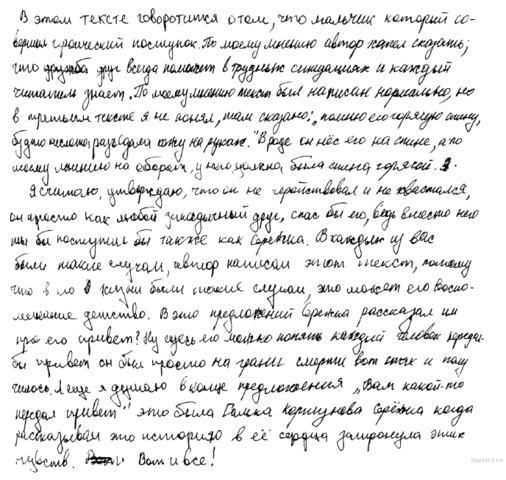 В этом тексте говоротится о том, что мальчик который со-
вершил героический поступок. По моему мнению автор хотел сказать;
что дружба друг всегда поможет в трудных ситуациях и каждый
читатель знает. По моему мнению текст был написан нормально, но
в третьем тексте я не понял, там сказано: "помню его горячую спину,
будто кислота разъедала кожу на руках." Вроде он нёс его на спине, а по
моему мнению на оборот, у него должна была спина горячой.
Я считаю, утверждаю, что он не геройствовал и не хвастался,
он просто как любой закадычный друг, спас бы его, ведь вместо него
мы бы поступил бы также как Серёжка. В каждым из вас
были такие случаи, автор написал этот текст, потому
что в его в жизни были такие случаи, это может его воспо-
минание детство. В это предложений Сережка рассказал им
про его привет? Ну здесь его можно понять каждый человек передал
бы привет он был просто на грани смерти вот так и полу
чилось. А еще я думаю в конце предложения "Вам какой-то
передал привет" это была Галка Коршунова Серёжка когда
рассказывал это историю в её сердца затронула этих
чувств. Вот и все!
РЕШУЕГЭ.РФ